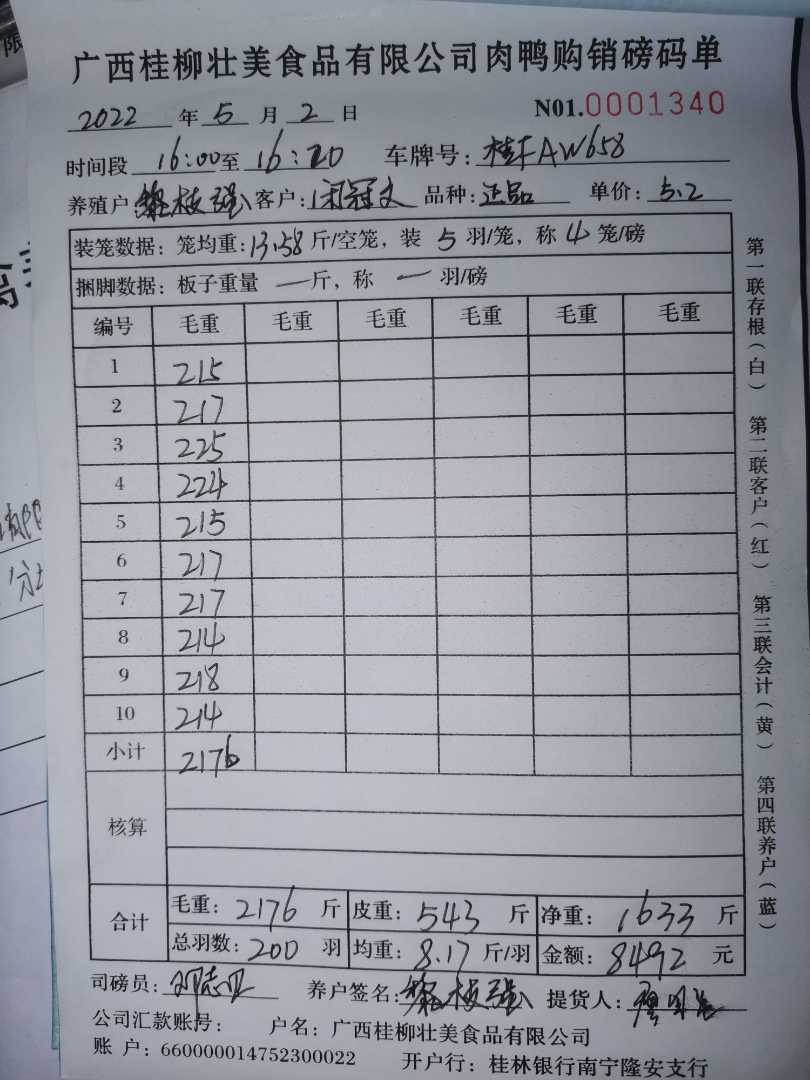 广西桂柳壮美食品有限公司肉鸭购销磅码单
2022 年 5 月 2 日 N01.0001340
时间段 16:00 至 16:20 车牌号: AW658
养殖户 枝强 客户: 闭冠文 品种: 正品 单价: 5.2
装笼数据: 笼均重: 13.58 斤/空笼, 装 5 羽/笼, 称 4 笼/磅
捆脚数据: 板子重量 — 斤, 称 — 羽/磅
编号 毛重 毛重 毛重 毛重 毛重 毛重
1 215
2 217
3 225
4 224
5 215
6 217
7 217
8 214
9 218
10 214
小计 2176
核算
合计 毛重: 2176 斤 皮重: 543 斤 净重: 1633 斤
总羽数: 200 羽 均重: 8.17 斤/羽 金额: 8492 元
司磅员: 邓志 养户签名: 枝强 提货人:
公司汇款账号: 户名: 广西桂柳壮美食品有限公司
账 户: 660000014752300022 开户行: 桂林银行南宁隆安支行
第一联存根(白) 第二联客户(红) 第三联会计(黄) 第四联养户(蓝)